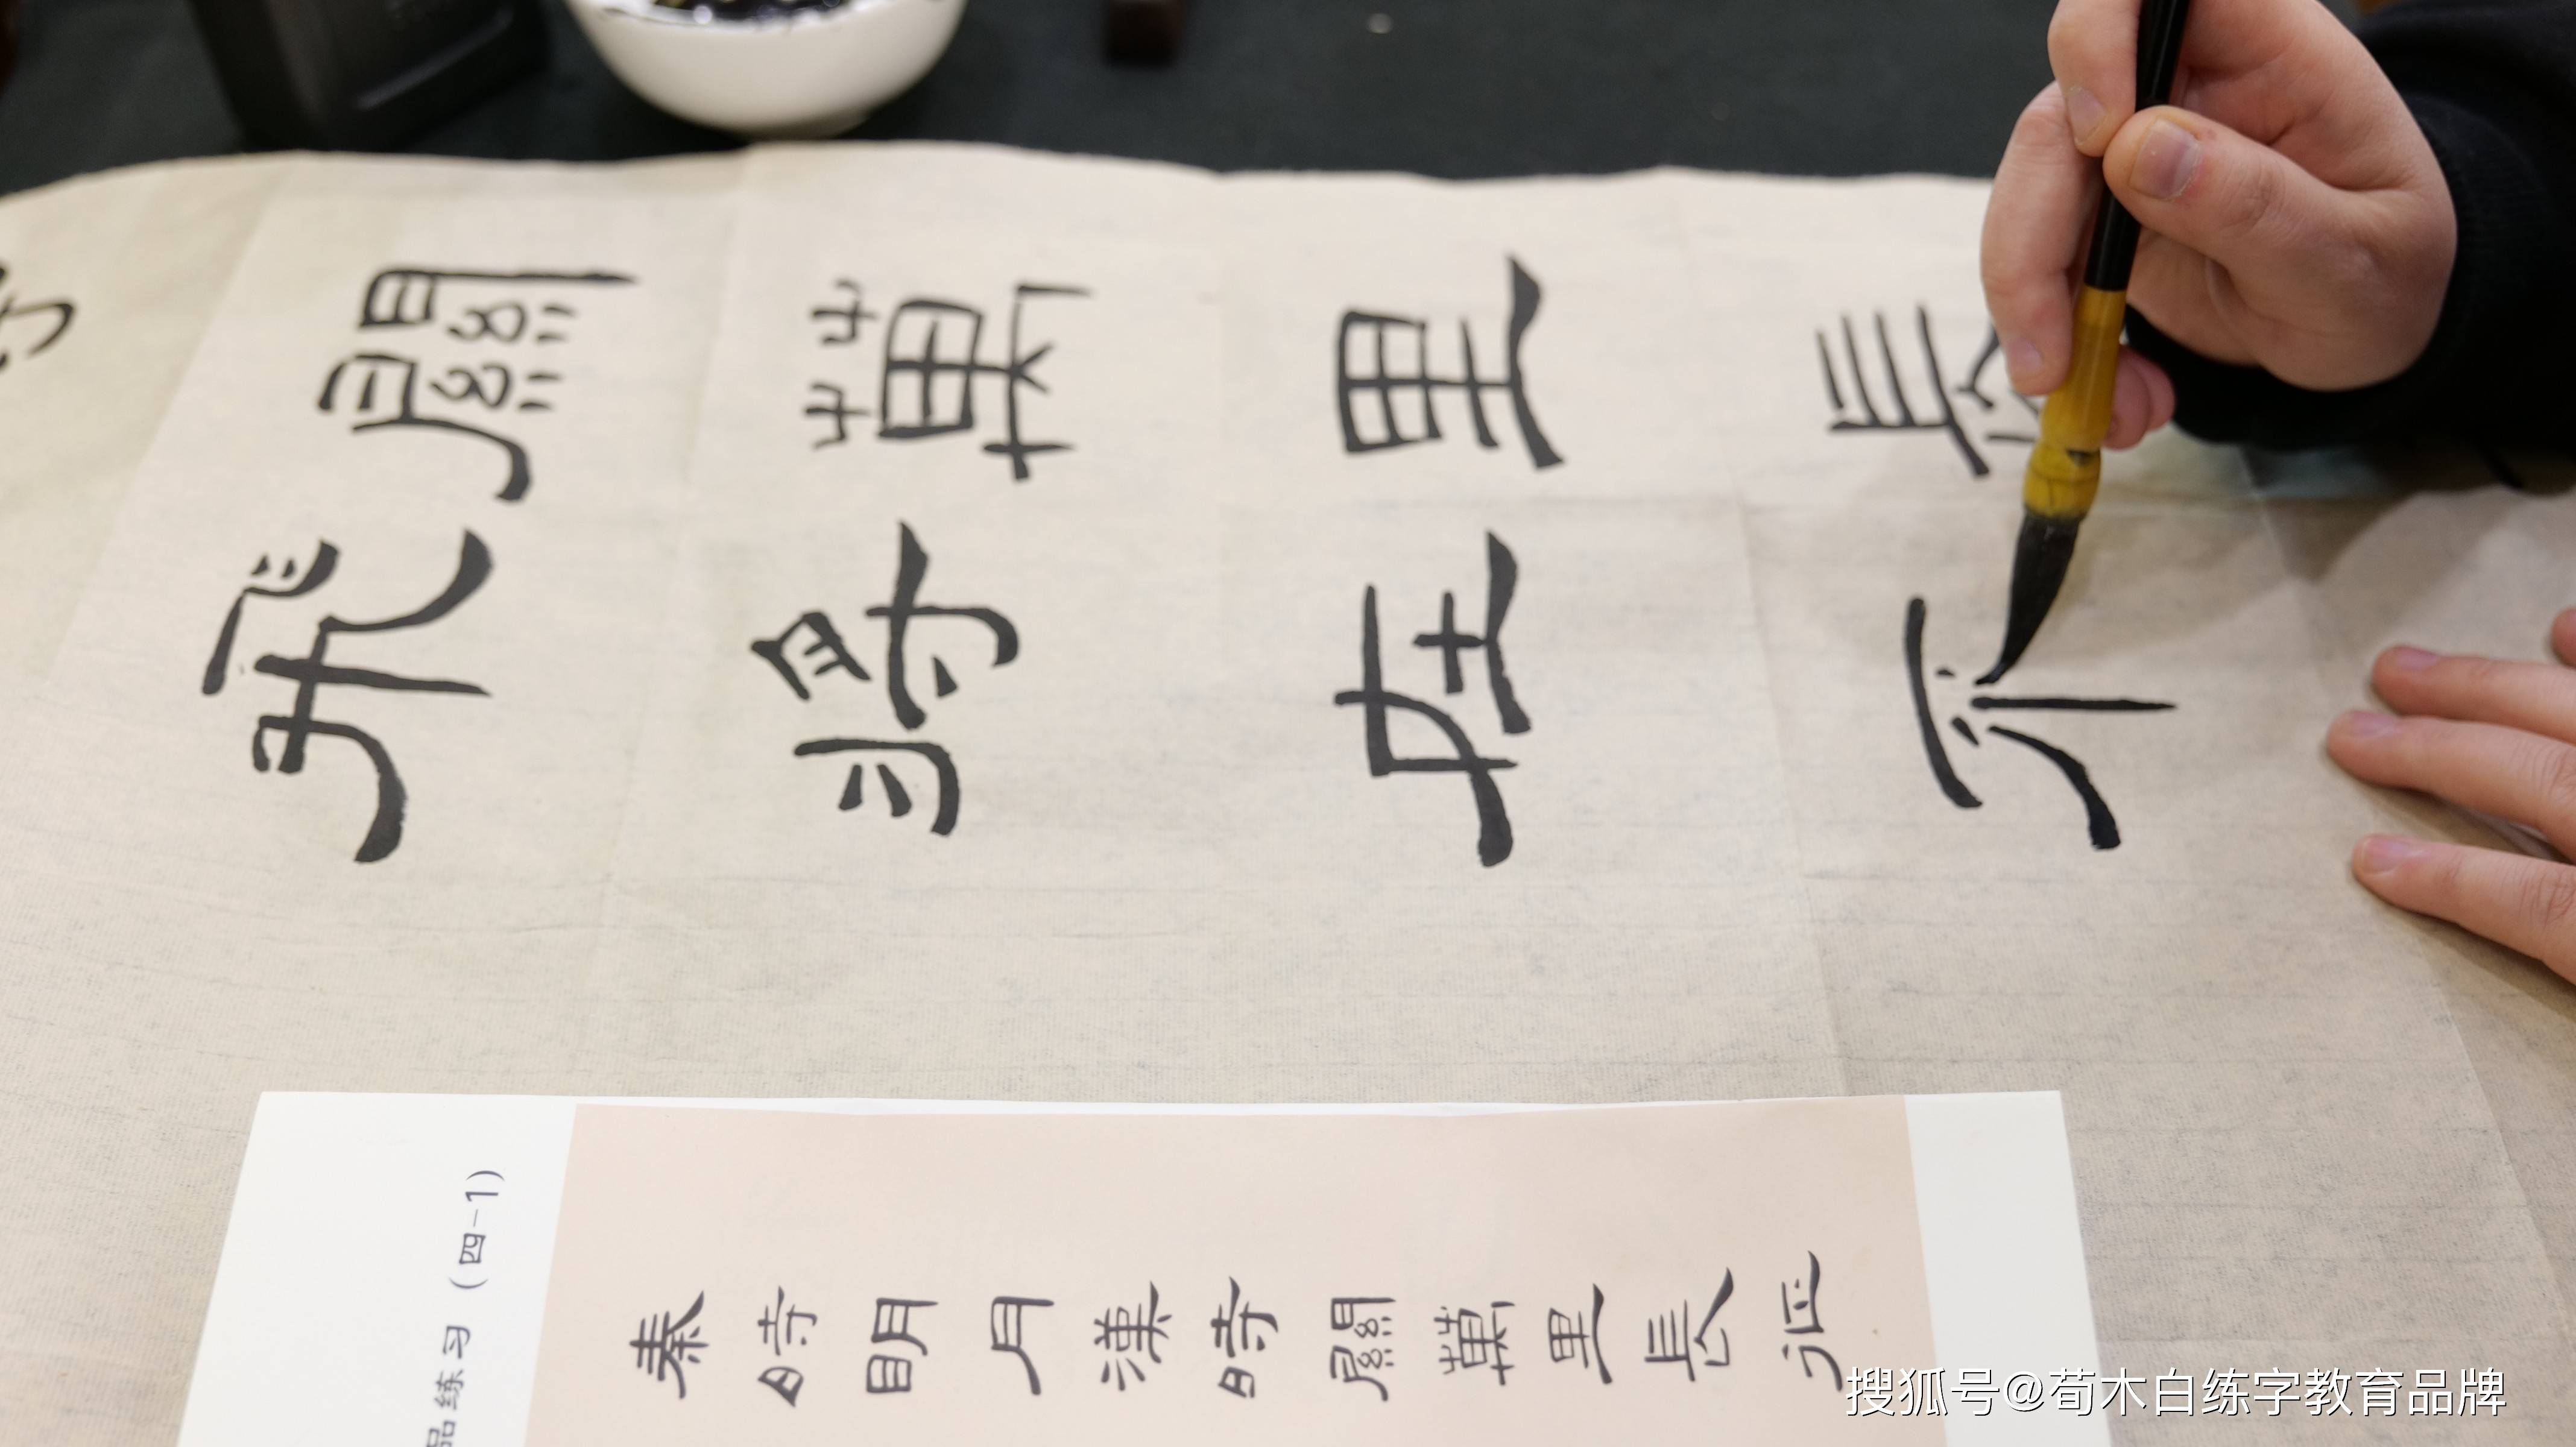 關萬里長
飛將在不
品练习（四-1）
秦時明月漢時關萬里長征
搜狐号@荀木白练字教育品牌